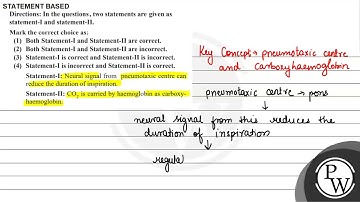 STATEMENT BASED
Directions: In the questions, two statements are given as
statement-I and statement-II.
Mark the correct choice as:
(1) Both Statement-I and Statement-II are correct.
(2) Both Statement-I and Statement-II are incorrect.
(3) Statement-I is correct and Statement-II is incorrect.
(4) Statement-I is incorrect and Statement-II is correct.
Statement-I: Neural signal from pneumotaxic centre can
reduce the duration of inspiration.
Statement-II: CO₂ is carried by haemoglobin as carboxy-
haemoglobin.
Key Concept → pneumotaxic centre
and carboxyhaemoglobin
pneumotaxic centre → pons
↓
neural signal from this reduces the
duration of inspiration
↓
regula
PW